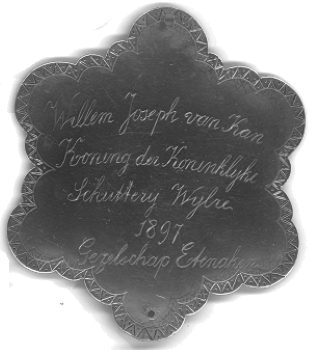 Willem Joseph van Kan
Kooning der Koninklyke
Schuttery Wylre
1897
Gezelschap Etenaken